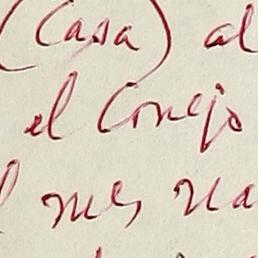 (Casa) al
el Conejo
l mes, na